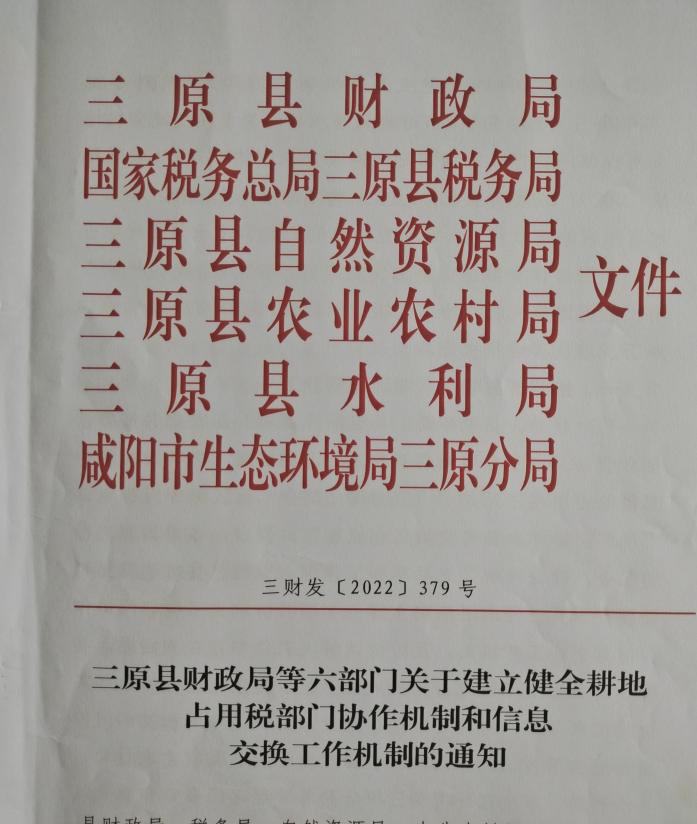 三原县财政局
国家税务总局三原县税务局
三原县自然资源局
三原县农业农村局
三原县水利局
咸阳市生态环境局三原分局
文件
三财发〔2022〕379号
三原县财政局等六部门关于建立健全耕地
占用税部门协作机制和信息
交换工作机制的通知